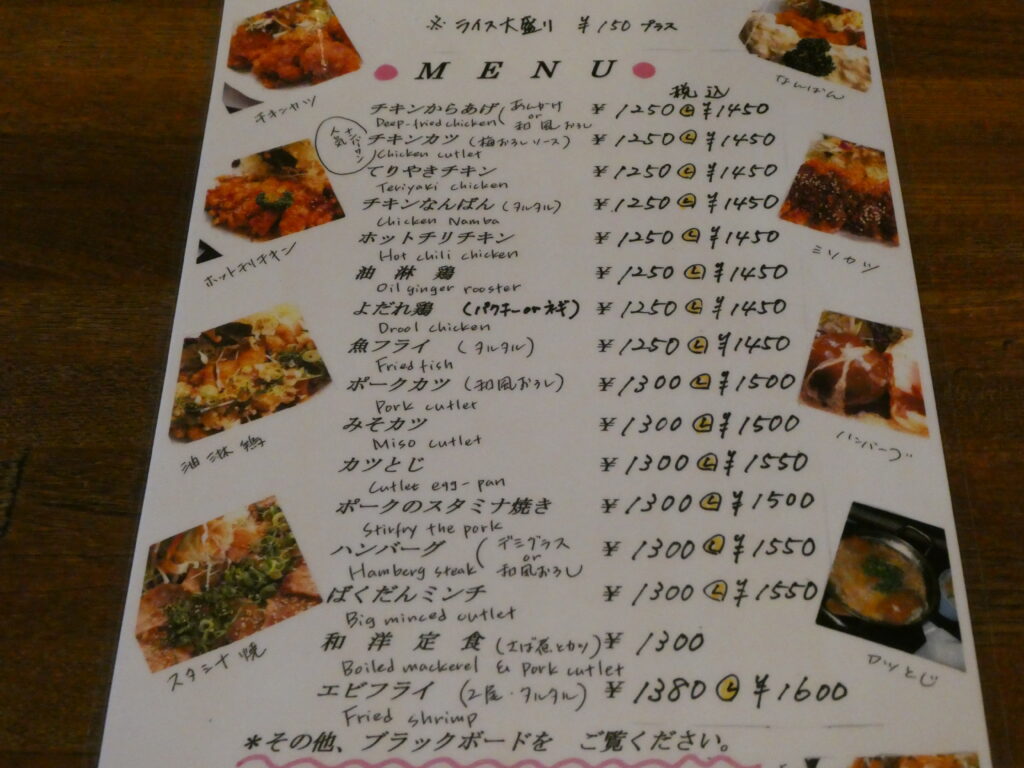 ※ライス大盛り ¥150プラス
MENU
税込
チキンからあげ(あんかけ or 和風おろし ¥1250 Ⓛ ¥1450
Deep-fried chicken
人気ナンバーワン
チキンカツ (梅おろしソース) ¥1250 Ⓛ ¥1450
Chicken cutlet
てりやきチキン ¥1250 Ⓛ ¥1450
Teriyaki chicken
チキンなんばん (タルタル) ¥1250 Ⓛ ¥1450
Chicken Namba
ホットチリチキン ¥1250 Ⓛ ¥1450
Hot chili chicken
油淋鶏 ¥1250 Ⓛ ¥1450
Oil ginger rooster
よだれ鶏 (パクチーorネギ) ¥1250 Ⓛ ¥1450
Drool chicken
魚フライ (タルタル) ¥1250 Ⓛ ¥1450
Fried fish
ポークカツ (和風おろし) ¥1300 Ⓛ ¥1500
Pork cutlet
みそカツ ¥1300 Ⓛ ¥1500
Miso cutlet
カツとじ ¥1300 Ⓛ ¥1550
Cutlet egg-pan
ポークのスタミナ焼き ¥1300 Ⓛ ¥1500
Stirfry the pork
ハンバーグ (デミグラス or 和風おろし ¥1300 Ⓛ ¥1550
Hamberg steak
ばくだんミンチ ¥1300 Ⓛ ¥1550
Big minced cutlet
和洋定食 (さば煮とカツ) ¥1300
Boiled mackerel & pork cutlet
エビフライ (2尾・タルタル) ¥1380 Ⓛ ¥1600
Fried shrimp
*その他、ブラックボードを ご覧ください。
チキンカツ
ホットチリチキン
油淋鶏
スタミナ焼
なんばん
ミソカツ
ハンバーグ
カツとじ